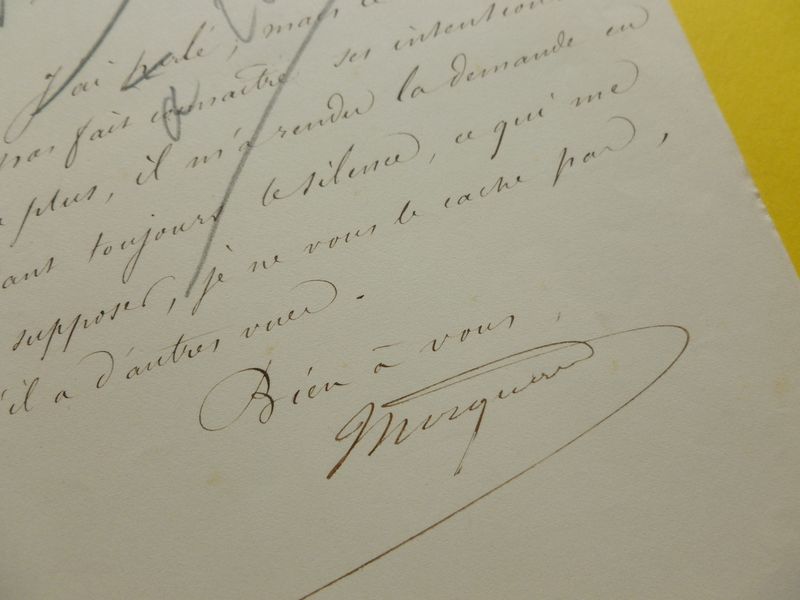 J'ai parlé, mais
pas fait connaître ses intentions
plus, il m'a rendu la demande en
ant toujours le silence, ce qui me
supposer, je ne vous le cache pas,
il a d'autres vues.
Bien à vous,